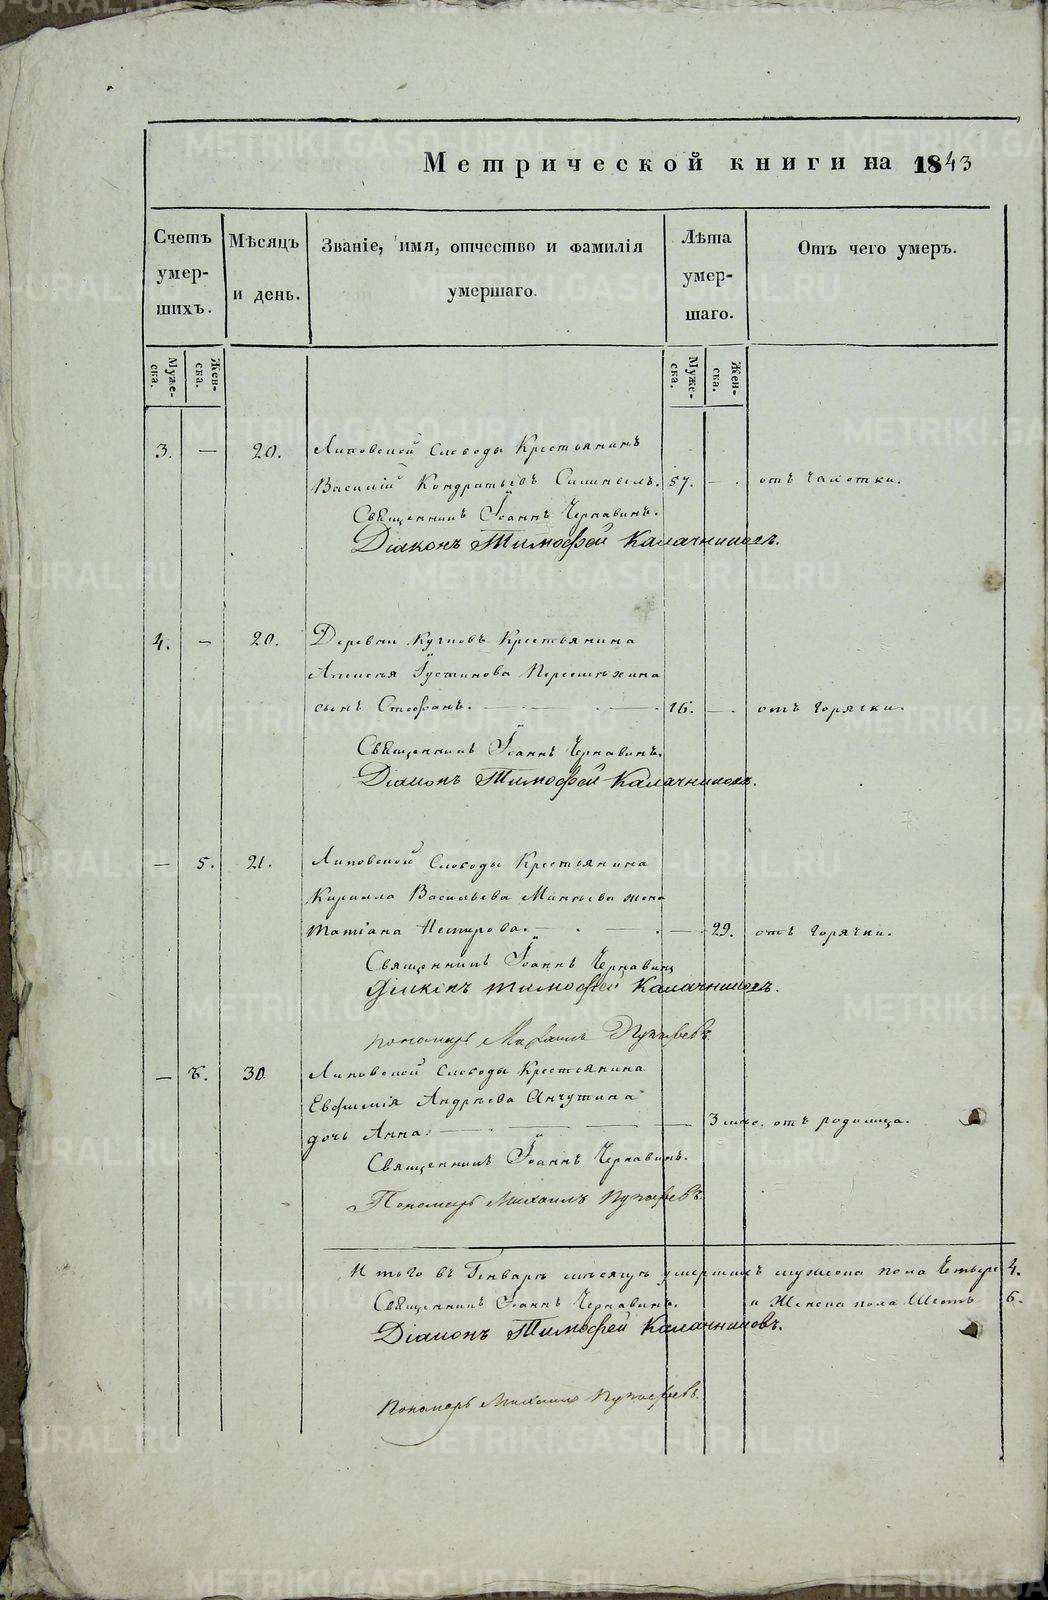 Метрической книги на 1843
Счетъ умер-шихъ.
Мѣсяцъ и день.
Званіе, имя, отчество и фамилія умершаго.
Лѣта умер-шаго.
Отъ чего умеръ.
Муже-ска.
Жен-ска.
Муже-ска.
Жен-ска.
3. — 20. Липовской Слободы Крестьянинъ
Василій Кондратьевъ 57. — . отъ чахотки.
Священникъ Іоаннъ Чернавинъ.
Діаконъ Тимофей Калачниковъ.
4. — 20. Деревни Крестьянина
Алексѣя Іустинова
сынъ Стефанъ. 16. — отъ горячки.
Священникъ Іоаннъ Чернавинъ.
Діаконъ Тимофей Калачниковъ.
— 5. 21. Липовской Слободы Крестьянина
Кирилла Васильева жена
Татіана Нестерова. — 29. отъ горячки.
Священникъ Іоаннъ Чернавинъ
Діаконъ Тимофей Калачниковъ.
Пономарь Михаилъ
— 6. 30. Липовской Слободы Крестьянина
Евфимія Андрѣева
дочь Анна. — 3 мѣс. отъ родимца.
Священникъ Іоаннъ Чернавинъ.
Пономарь Михаилъ
Итого въ Генварѣ мѣсяцѣ умершихъ мужеска пола Четыре 4.
Священникъ Іоаннъ Чернавинъ. и Женска пола Шесть 6.
Діаконъ Тимофей Калачниковъ.
Пономарь Михаилъ
METRIKI.GASO-URAL.RU